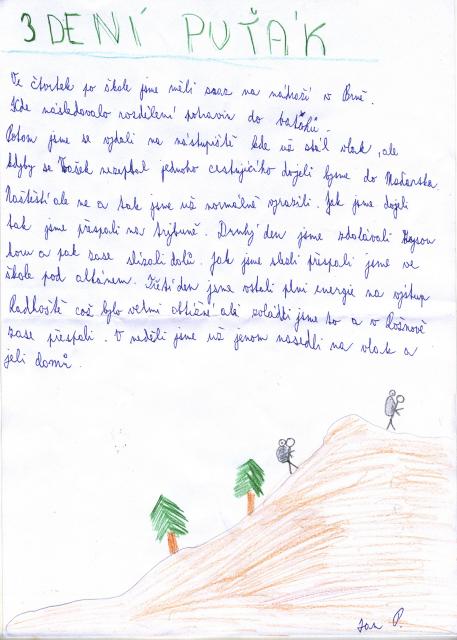 3 DENÍ PUŤÁK
Ve čtvrtek po škole jsme měli sraz na nádraží v Brně.
Kde následovalo rozdělení potravin do baťohů.
Potom jsme se vydali na nástupiště kde už stál vlak, ale
kdyby se Vašek nezeptal jednoho cestujícího dojeli bysme do Maďarska.
Naštěstí ale ne a tak jsme už normálně vyrazili. Jak jsme dojeli
tak jsme přespali na trybuně. Druhý den jsme zdolávali
horu a pak zase slízali dolů. Jak jsme slezli přespali jsme ve
škole pod altánem. Třetí den jsme vstali plni energie na výstup
Radhoště což bylo velmi obtížné ale zvládli jsme to a v Rožnově
zase přespali. V neděli jsme už jenom nasedli na vlak a
jeli domů.
Jan P.